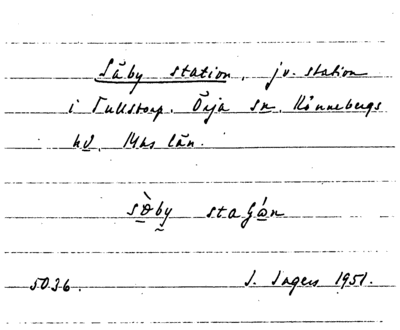 Såby station, jv. station
i Tullstorp. Örja sn. Rönnebergs
hd. Mhs län.
sò̱by staʃó̱n
5036. I. Ingers 1951.